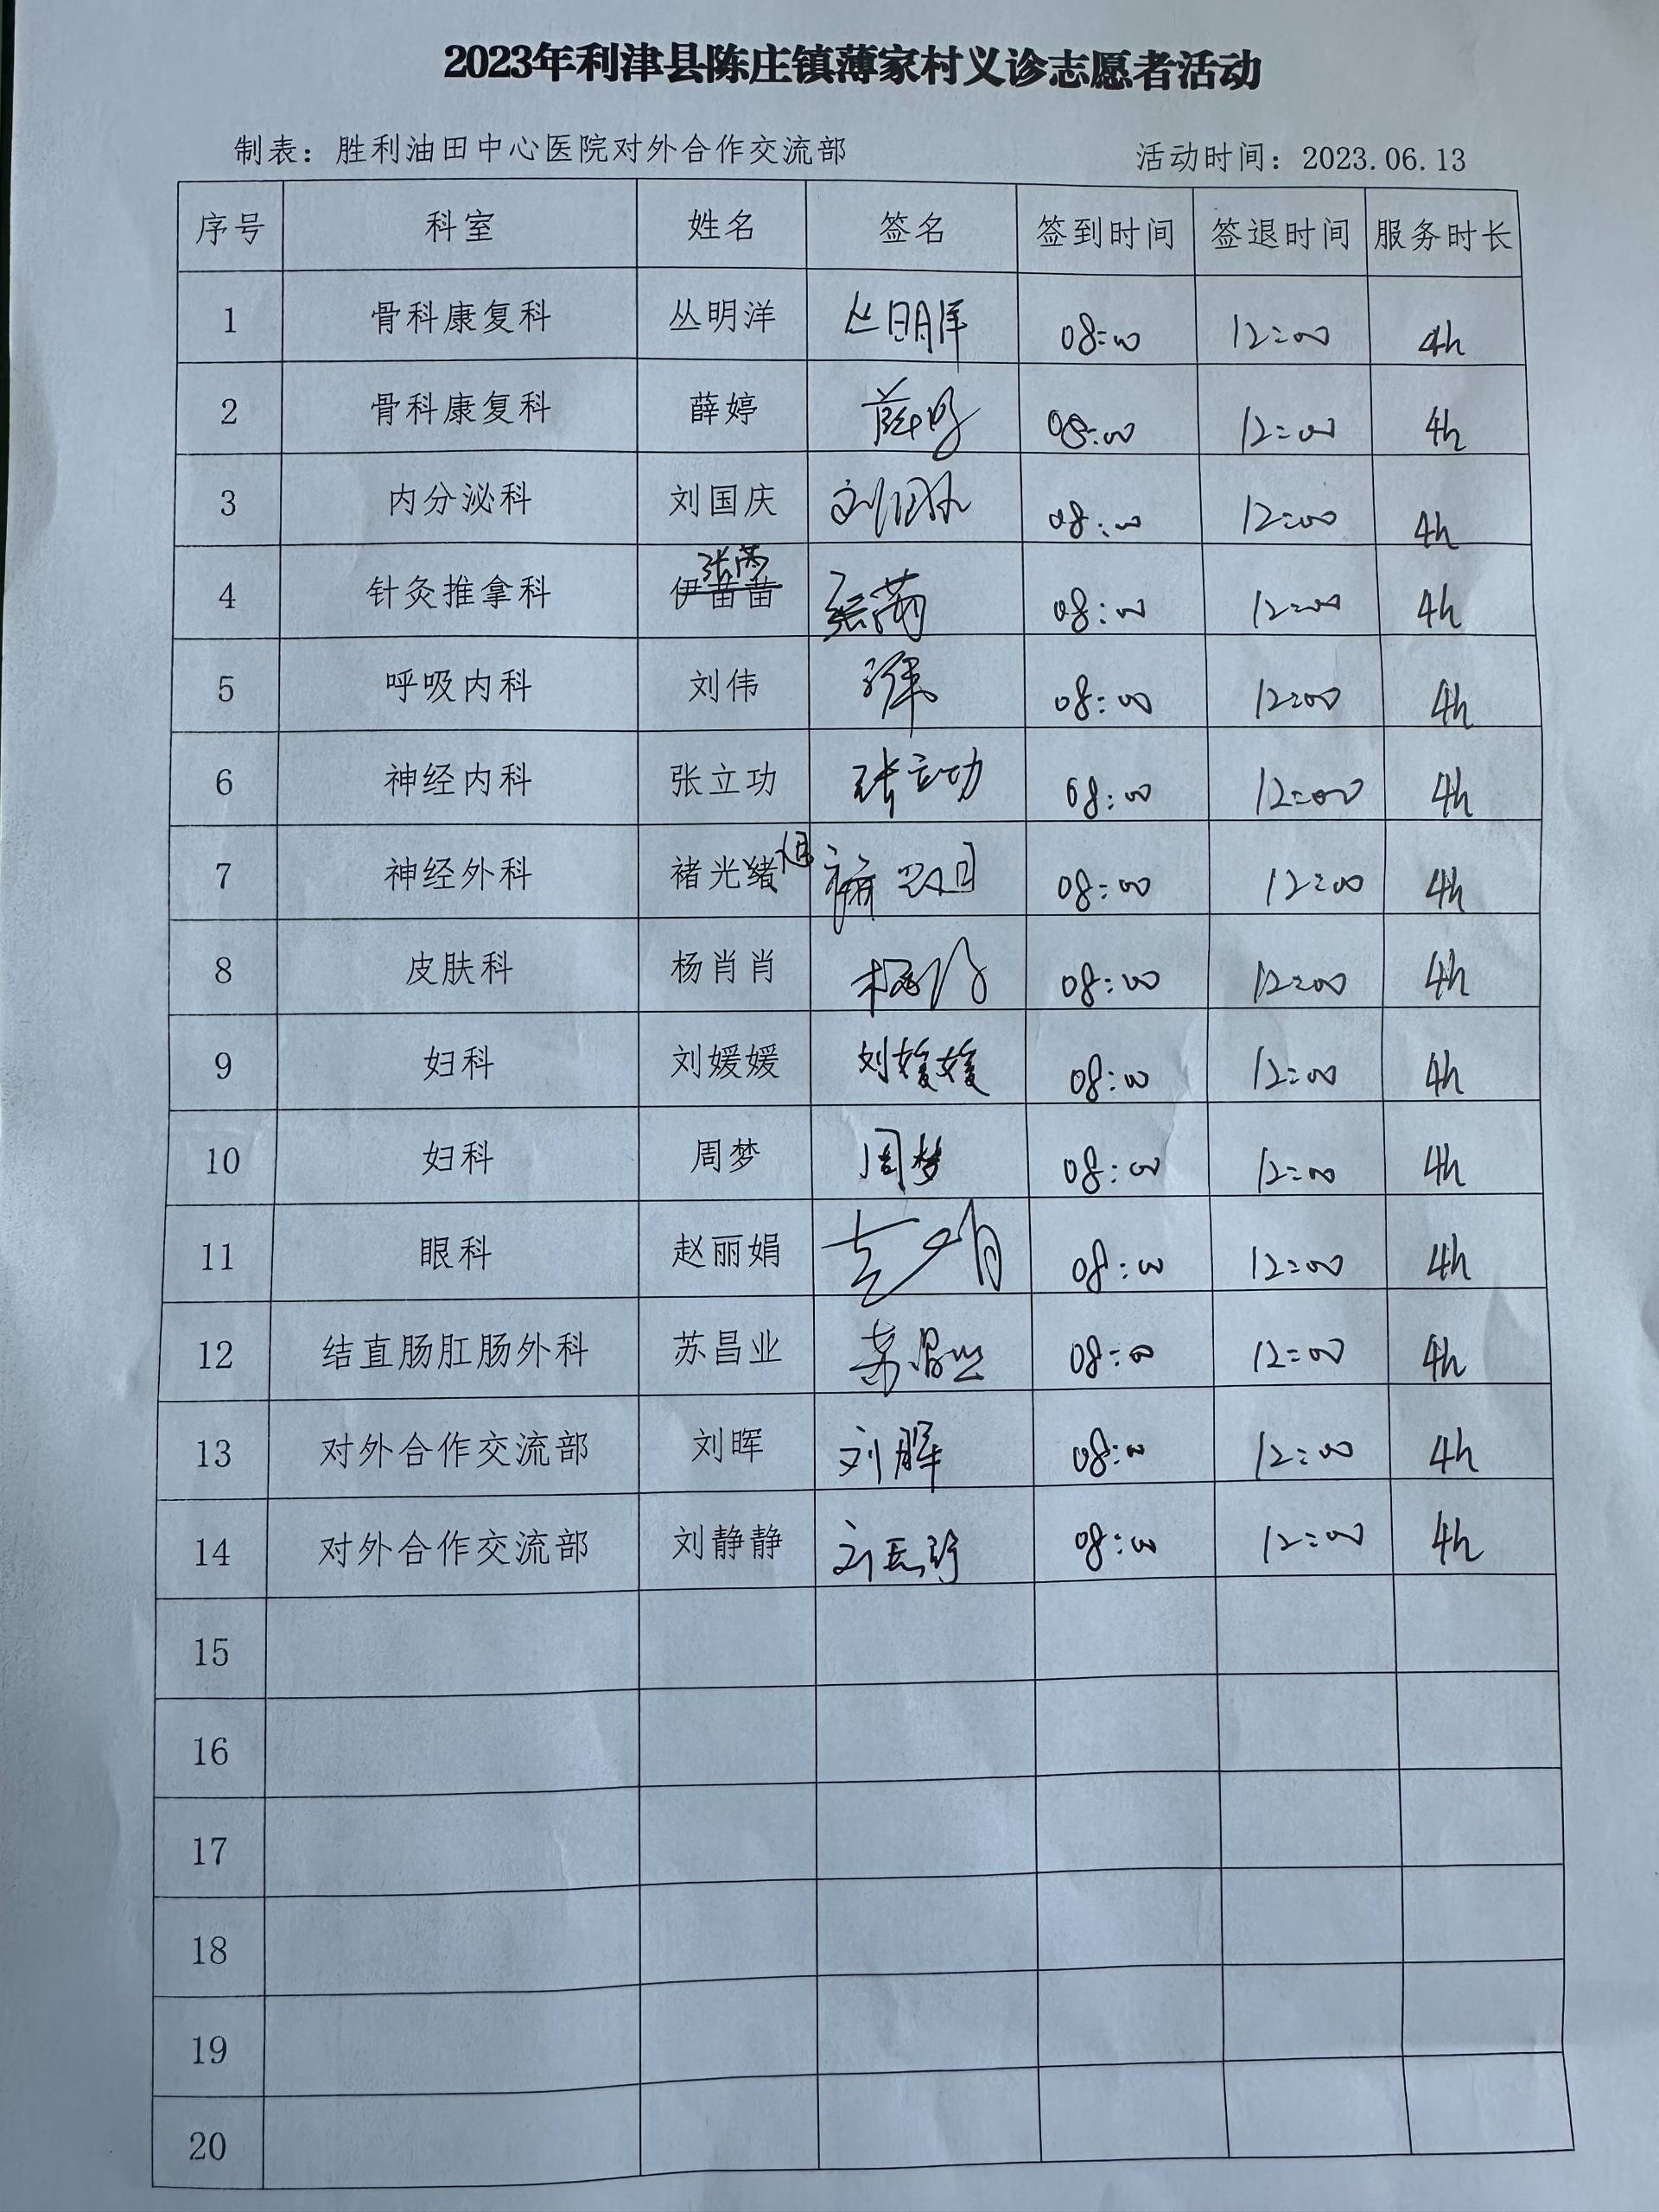 2023年利津县陈庄镇薄家村义诊志愿者活动
制表：胜利油田中心医院对外合作交流部 活动时间：2023.06.13
序号 科室 姓名 签名 签到时间 签退时间 服务时长
1 骨科康复科 丛明洋 丛明洋 08:00 12:00 4h
2 骨科康复科 薛婷 薛婷 08:00 12:00 4h
3 内分泌科 刘国庆 刘国庆 08:00 12:00 4h
张满
4 针灸推拿科 伊苗苗 张满 08:00 12:00 4h
5 呼吸内科 刘伟 刘伟 08:00 12:00 4h
6 神经内科 张立功 张立功 08:00 12:00 4h
7 神经外科 褚光绪 08:00 12:00 4h
8 皮肤科 杨肖肖 杨肖肖 08:00 12:00 4h
9 妇科 刘媛媛 刘媛媛 08:00 12:00 4h
10 妇科 周梦 周梦 08:00 12:00 4h
11 眼科 赵丽娟 赵丽娟 08:00 12:00 4h
12 结直肠肛肠外科 苏昌业 苏昌业 08:00 12:00 4h
13 对外合作交流部 刘晖 刘晖 08:00 12:00 4h
14 对外合作交流部 刘静静 刘静静 08:00 12:00 4h
15
16
17
18
19
20